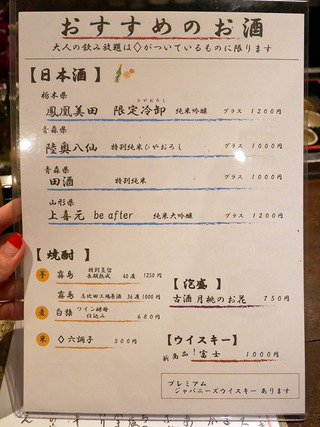 おすすめのお酒
大人の飲み放題は◇がついているものに限ります
【日本酒】
栃木県
鳳凰美田 限定冷卸 純米吟醸 グラス 1200円
ひやおろし
青森県
陸奥八仙 特別純米ひやおろし グラス 1000円
青森県
田酒 特別純米 グラス 1000円
山形県
上喜元 be after 純米大吟醸 グラス 1200円
【焼酎】
芋 霧島 特別蒸留 長期熟成 40度 1250円
霧島 志比田工場原酒 36度 1000円
麦 白猿 ワイン酵母仕込み 680円
米 ◇六調子 500円
【泡盛】
古酒 月桃のお花 750円
【ウイスキー】
新商品！富士 1000円
プレミアム
ジャパニーズウイスキー あります